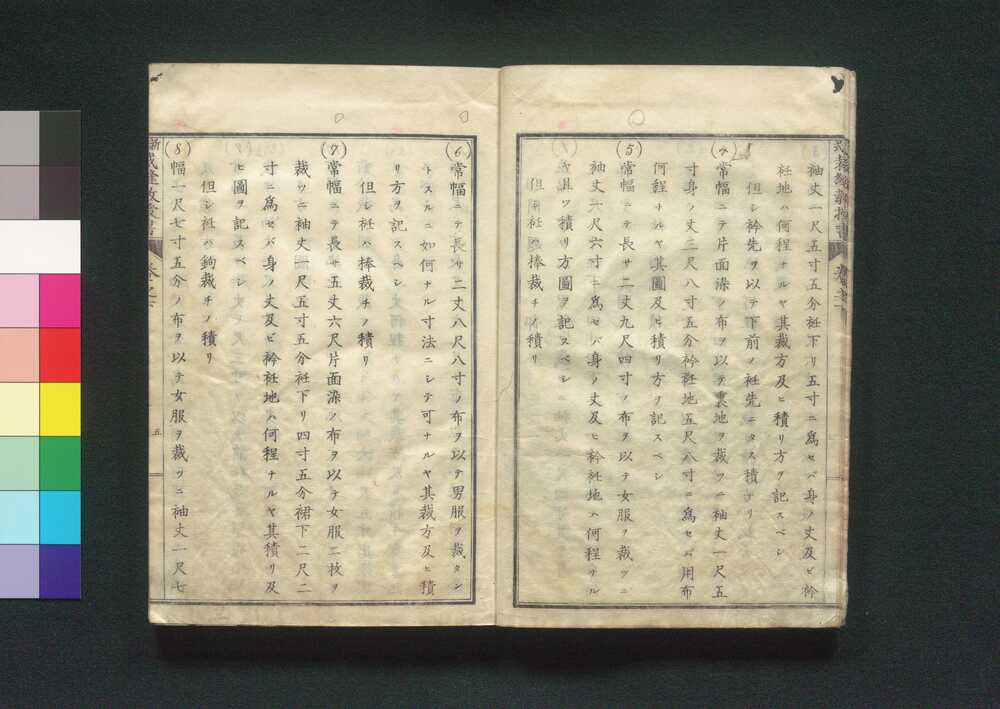 袖丈一尺五寸五分衽下リ五寸ニ爲セバ身ノ丈及ビ衿
衽地ハ何程ナルヤ其裁方及ヒ積リ方ヲ記スベシ
但シ衿先ヲ以テ下前ノ衽先ニタス積リ
(4)
常幅ニテ片面染ノ布ヲ以テ裏地ヲ裁ツニ袖丈一尺五
寸身ノ丈三尺八寸五分衿衽地五尺八寸ニ爲セバ用布
何程ナルヤ其圖及ヒ積リ方ヲ記スベシ
(5)
常幅ニテ長サ二丈九尺四寸ノ布ヲ以テ女服ヲ裁ツニ
袖丈一尺六寸ニ爲セバ身ノ丈及ヒ衿衽地ハ何程ナル
ヤ且ツ積リ方圖ヲ記スベシ
但シ衽ハ捧裁チノ積リ
(6)
常幅ニテ長サ二丈八尺八寸ノ布ヲ以テ男服ヲ裁タン
トスルニ如何ナル寸法ニシテ可ナルヤ其裁方及ヒ積
リ方ヲ記スベシ
但シ衽ハ捧裁チノ積リ
(7)
常幅ニテ長サ五丈六尺片面染ノ布ヲ以テ女服二枚ヲ
裁ツニ袖丈一尺五寸五分衽下リ四寸五分裙下二尺二
寸ニ爲セバ身ノ丈及ビ衿衽地ハ何程ナルヤ其積リ及
ヒ圖ヲ記スベシ
但シ衽ハ鉤裁チノ積リ
(8)
幅一尺七寸五分ノ布ヲ以テ女服ヲ裁ツニ袖丈一尺七
五